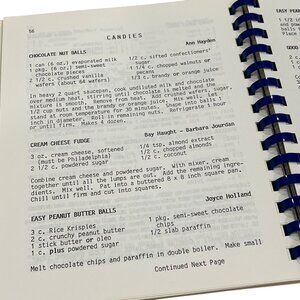 56
CANDIES
CHOCOLATE NUT BALLS
Ann Hayden
1 can (6 oz.) evaporated milk
1 pkg. (6 oz.) semi-sweet
chocolate pieces
2 1/2 c. crushed vanilla
wafers (about 64 wafers)
1/2 c. sifted confectioners'
sugar
1 1/2 c. chopped walnuts or
pecans
1/3 c. brandy or orange juice
In heavy 2 quart saucepan, cook undiluted milk and chocolate
over medium heat, stirring until chocolate is melted and
1/2 cup nuts and the brandy or orange juice.
stand at room temperature for 30 minutes. Shape into balls 1
inch in diameter. Roll in remaining nuts. Refrigerate 1 hour
or until firm. Makes 4 dozen.
CREAM CHEESE FUDGE
Bay Haught - Barbara Jourdan
3 oz. cream cheese, softened
(must be Philadelphia)
2 1/2 c. powdered sugar
1/4 tsp. almond extract
1/2 c. chopped almonds
1/2 c. coconut
Combine cream cheese and powdered sugar with mixer, cream
together until all the lumps are out. Add the remaining ingre-
dients. Mix well. Pat into a buttered 8 x 8 inch square pan.
Chill until firm and cut into squares.
EASY PEANUT BUTTER BALLS
Joyce Holland
3 c. Rice Krispies
2 c. crunchy peanut butter
1 stick butter or oleo
1 c. plus powdered sugar
1 pkg. semi-sweet chocolate
chips
1/2 slab paraffin
Melt chocolate chips and paraffin in double boiler. Make small
Continued Next Page
EASY PEAN